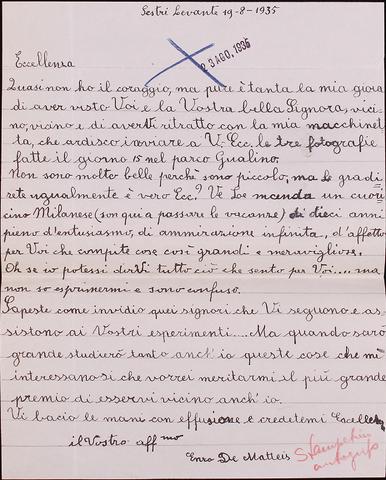 Sestri Levante 19-8-1935
23 AGO. 1935
Eccellenza
Quasi non ho il coraggio, ma pure è tanta la mia gioia
di aver visto Voi e la Vostra bella Signora, vici
no, vicino e di averVi ritratto con la mia macchinet
ta, che ardisco inviare a V. Ecc. le tre fotografie
fatte il giorno 15 nel parco Gualino.
Non sono molto belle perchè sono piccolo, ma le gradi
rete ugualmente è vero Ecc.? Ve Loe manda un cuori
cino Milanese (son qui a passare le vacanze) di dieci anni
pieno d'entusiasmo, di ammirazione infinita, d'affetto
per Voi che compite cose così grandi e meravigliose.
Oh se io potessi dirVi tutto ciò che sento per Voi.... ma
non so esprimermi e sono confuso.
Sapeste come invidio quei signori che Vi seguono e as-
sistono ai Vostri esperimenti.... Ma quando sarò
grande studierò tanto anch'io queste cose che mi
interessano sì che vorrei meritarmi il più grande
premio di esserVi vicino anch'io.
Vi bacio le mani con effusione e credetemi Eccellenza
il Vostro aff.mo
Enzo De Matteis
autografo